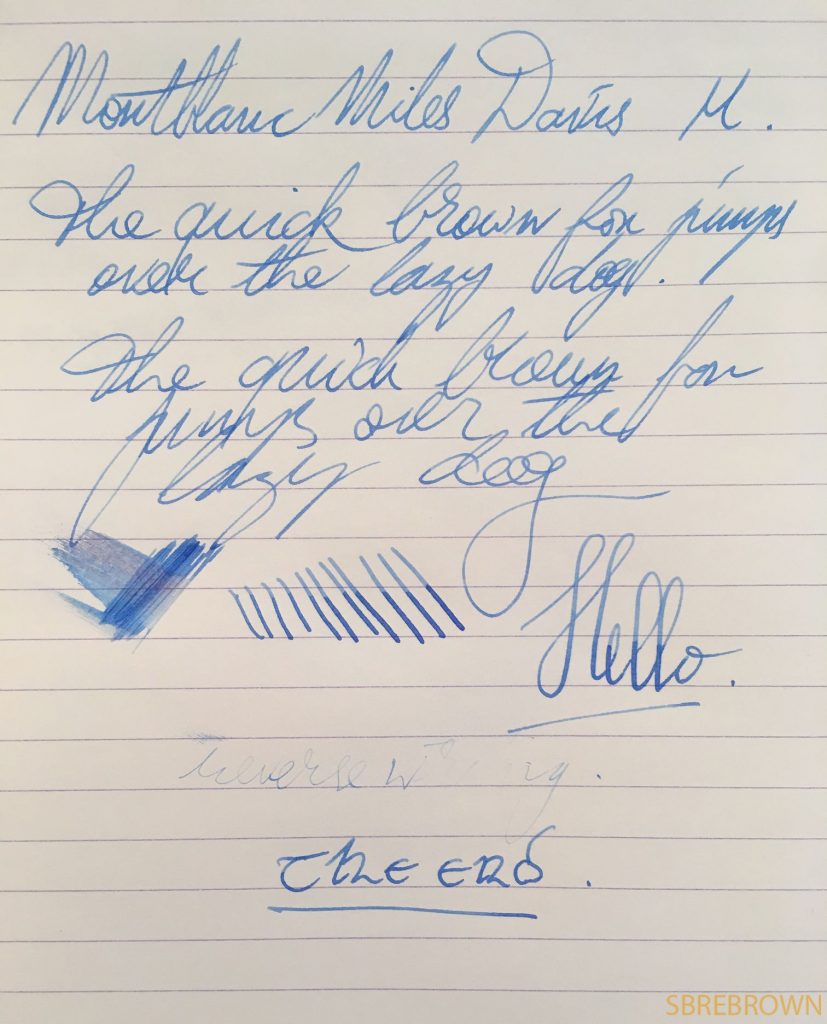 Montblanc Miles Davis M.
The quick brown fox jumps
over the lazy dog.
The quick brown fox
jumps over the
lazy dog
Hello.
reverse writing.
THE END.
SBREBROWN